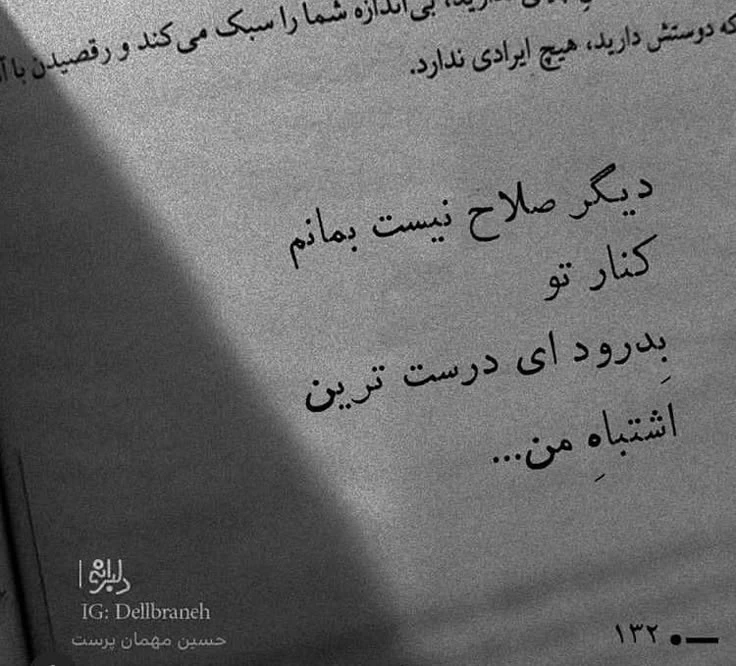 بی‌اندازه شما را سبک می‌کند و رقصیدن با
که دوستش دارید، هیچ ایرادی ندارد.
دیگر صلاح نیست بمانم
کنار تو
بِدرود ای درست ترین
اشتباهِ من...
دلبرانه
IG: Dellbraneh
حسین مهمان پرست
۱۳۲